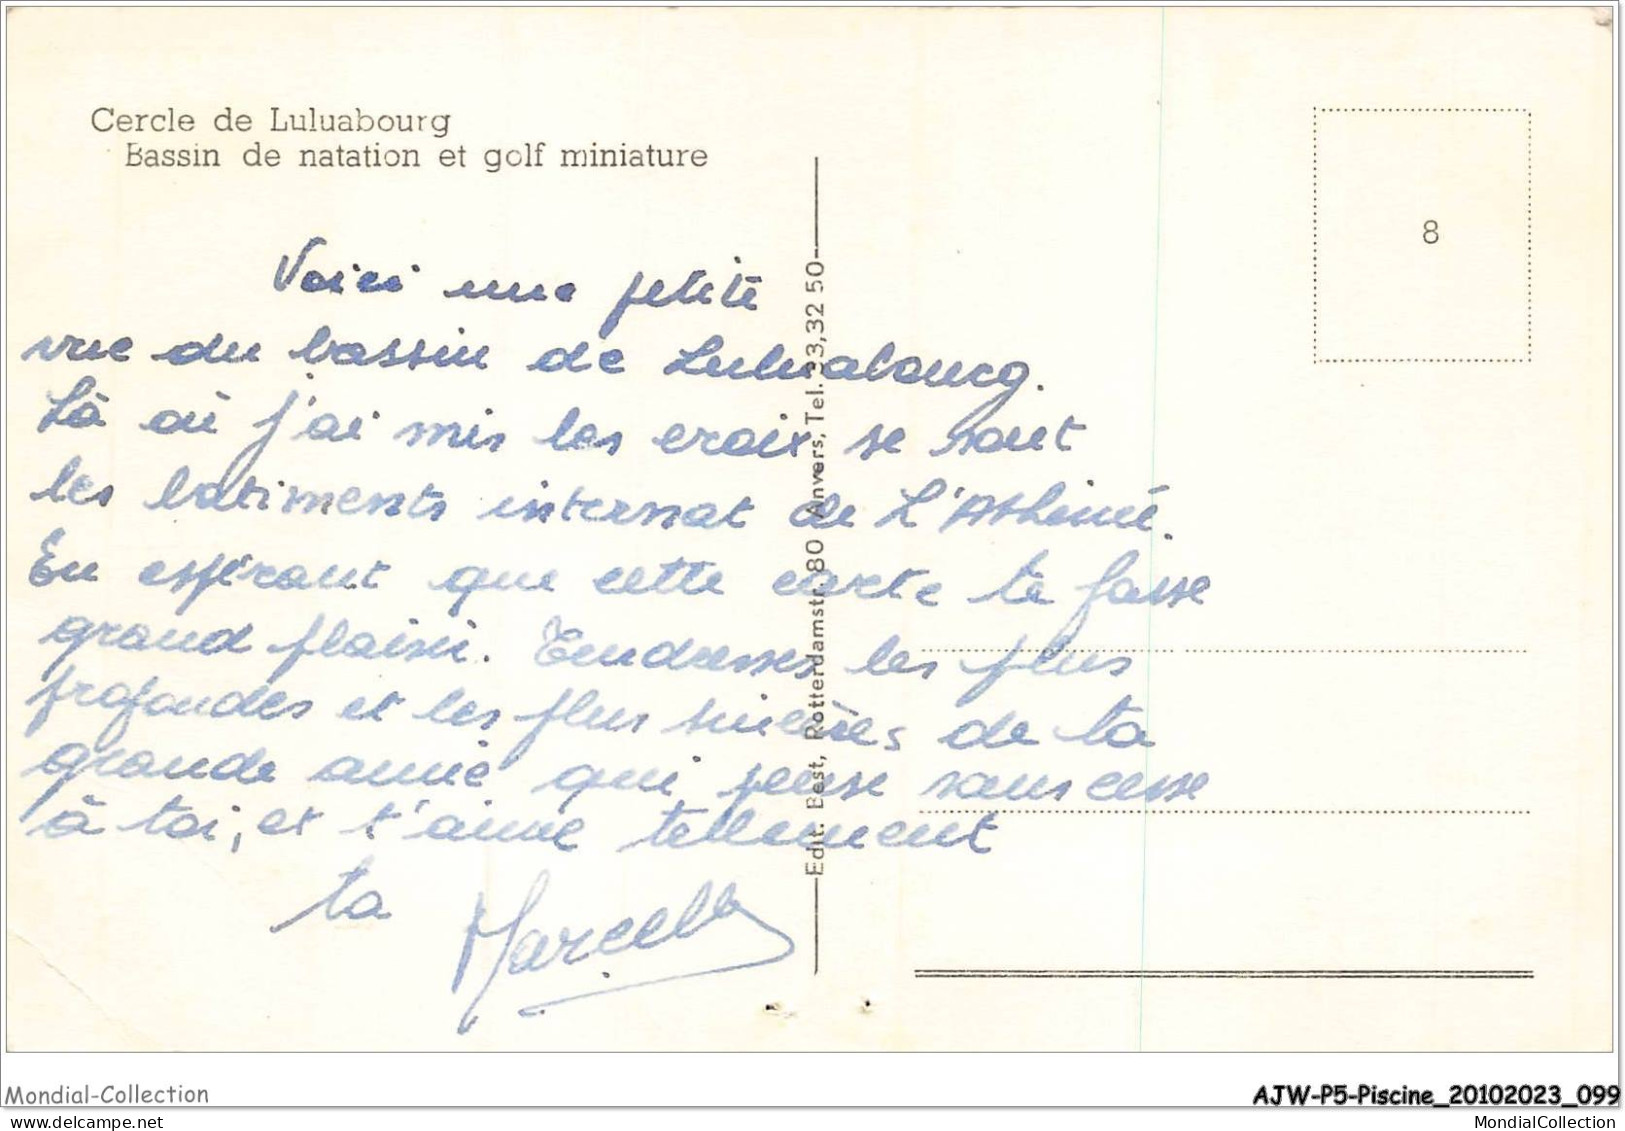 Cercle de Luluabourg
Bassin de natation et golf miniature
8
Voici une petite
vue du bassin de Luluabourg.
Là où j'ai mis les croix se sont
les batiments internat de L'Athéné.
En espérant que cette carte te fasse
grand plaisir. Tendresses les plus
profondes et les plus sincères de ta
grande amie qui pense sans cesse
à toi, et t'aime tellement
ta Marcelle
Edit. Best, Rotterdamstr. 80 Anvers, Tel. 33,32 50
Mondial-Collection
AJW-P5-Piscine_20102023_099
MondialCollection